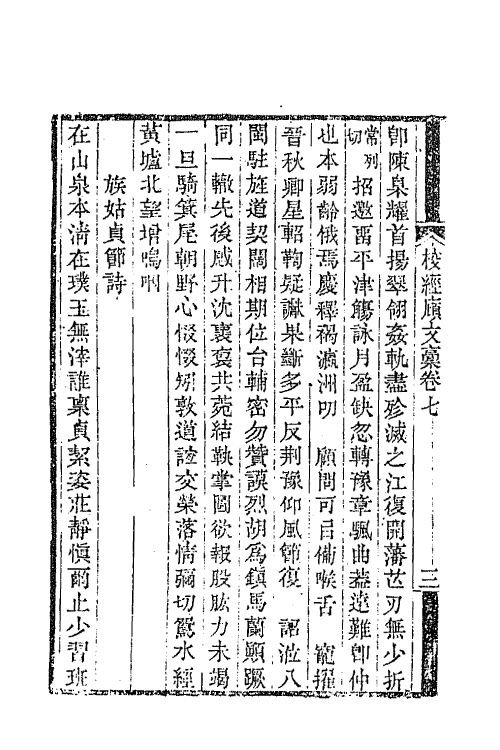 校經廎文稾卷七
三
卽陳臬耀首揚翠翎姦軌盡殄滅之江復開藩芒刃無少折
常列
切
招邀畱平津觴詠月盈缺忽轉豫章颿曲葢遠難卽仲
也本弱齡俄焉慶釋褐瀛洲叨　顧問可㠯備喉舌　寵擢
晉秋卿星軺鞫疑讞果斷多平反荆豫仰風節復　詔涖八
閩駐旌道契闊相期位台輔密勿贊謨烈胡爲鎮馬蘭顚蹶
同一轍先後感升沈裒裒共菀結執掌圖欲報股肱力未竭
一旦騎箕尾朝野心惙惙矧敦道誼交榮落情彌切鴛水經
黃壚北望增嗚咽
族姑貞節詩
在山泉本淸在璞玉無滓誰稟貞絜姿莊靜愼爾止少習班